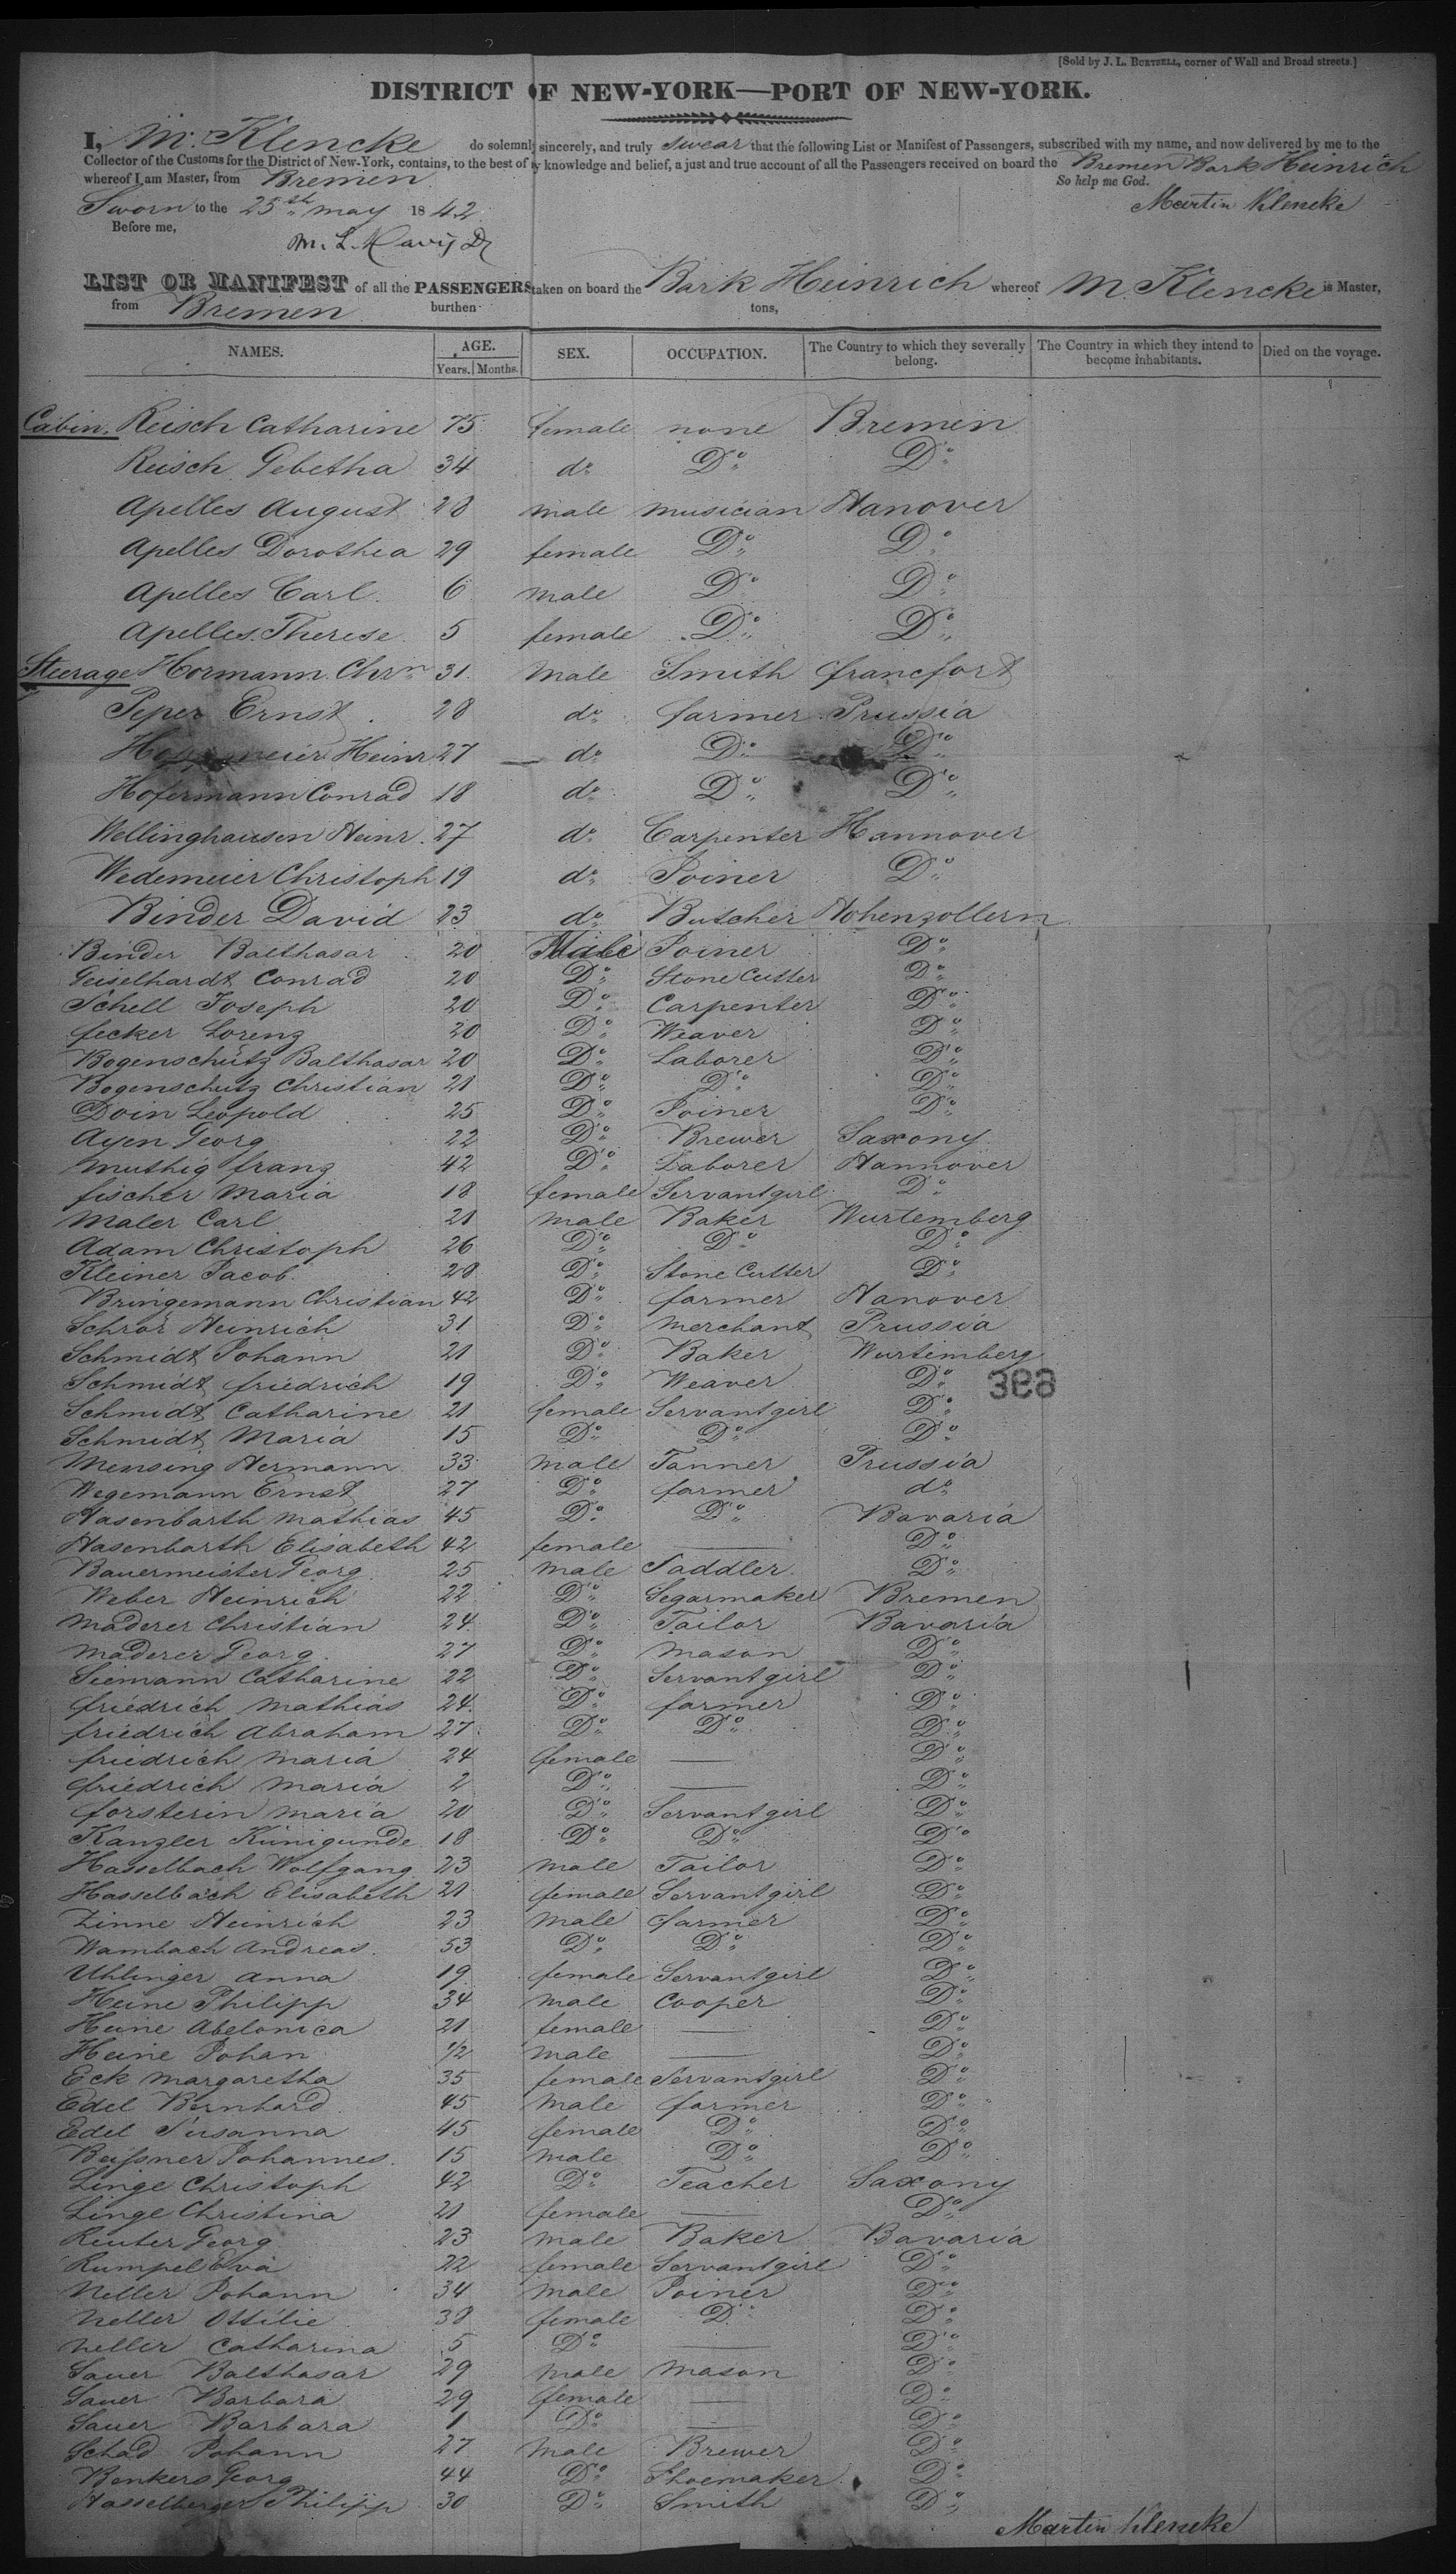 [Sold by J. L. BURTSELL, corner of Wall and Broad streets.]
DISTRICT OF NEW-YORK—PORT OF NEW-YORK.
I, M. Klencke do solemnly sincerely, and truly swear that the following List or Manifest of Passengers, subscribed with my name, and now delivered by me to the
Collector of the Customs for the District of New-York, contains, to the best of my knowledge and belief, a just and true account of all the Passengers received on board the Bremen Bark Heinrich
whereof I am Master, from Bremen So help me God.
Sworn to the 25st may 1842 Martin Klencke
Before me,
LIST OR MANIFEST of all the PASSENGERS taken on board the Bark Heinrich whereof M. Klencke is Master,
from Bremen burthen tons,
NAMES. AGE. SEX. OCCUPATION. The Country to which they severally belong. The Country in which they intend to become inhabitants. Died on the voyage.
Years. Months.
Cabin. Reisch Catharine 75 female none Bremen
Reisch Gebetha 34 do Do Do
Apelles August 28 male musician Hanover
Apelles Dorothea 29 female Do Do
Apelles Carl 6 male Do Do
Apelles Therese 5 female Do Do
Steerage Hormann Chrn 31 Male Smith francfort
Peper Ernst 28 do farmer Prussia
Heinr 27 do Do Do
Hofermann Conrad 18 do Do Do
Wellinghausen Heinr. 27 do Carpenter Hannover
Wedemeier Christoph 19 do Joiner Do
Binder David 23 do Butcher Hohenzollern
Binder Balthasar 20 Male Joiner Do
Geiselhardt Conrad 20 Do Stone Cutter Do
Schell Joseph 20 Do Carpenter Do
fecker Lorenz 20 Do Weaver Do
Bogenschutz Balthasar 20 Do Laborer Do
Bogenschutz Christian 21 Do Do Do
Doin Leopold 25 Do Joiner Do
Ayen Georg 22 Do Brewer Saxony
Muthig franz 42 Do Laborer Hannover
fischer Maria 18 female Servantgirl Do
Maler Carl 21 male Baker Wurtemberg
Adam Christoph 26 Do Do Do
Kleiner Jacob 28 Do Stone Cutter Do
Bringemann Christian 42 Do farmer Hanover
Schror Heinrich 31 Do Merchant Prussia
Schmidt Johann 21 Do Baker Wurtemberg
Schmidt friedrich 19 Do Weaver Do
396
Schmidt Catharine 21 female Servantgirl Do
Schmidt Maria 15 Do Do Do
Mensing Hermann 33 male Tanner Prussia
Wegemann Ernst 27 Do farmer do
Hasenbarth Mathias 45 Do Do Bavaria
Hasenbarth Elisabeth 42 female — Do
Bauermeister Georg 25 male Saddler Do
Weber Heinrich 22 Do Segarmaker Bremen
Maderer Christian 24 Do Tailor Bavaria
Maderer Georg 27 Do Mason Do
Siemann Catharine 22 Do Servantgirl Do
friedrich Mathias 24 Do farmer Do
friedrich Abraham 27 Do Do Do
friedrich Maria 24 female — Do
friedrich Maria 2 Do — Do
forsterin Maria 20 Do Servantgirl Do
Kanzler Kunigunde 18 Do Do Do
Hasselbach Wolfgang 23 male Tailor Do
Hasselbach Elisabeth 21 female Servantgirl Do
Zinne Heinrich 23 male farmer Do
Wambach Andreas 53 Do Do Do
Uhlinger Anna 19 female Servantgirl Do
Heine Philipp 34 male Cooper Do
Heine Abelonica 21 female — Do
Heine Johan 1/2 male — Do
Eck Margaretha 35 female Servantgirl Do
Edel Bernhard 45 Male farmer Do
Edel Susanna 45 female Do Do
Beissner Johannes 15 male Do Do
Linge Christoph 42 Do Teacher Saxony
Linge Christina 21 female — Do
Reuter Georg 23 male Baker Bavaria
Rumpel Eva 22 female Servantgirl Do
Neller Johann 34 male Joiner Do
Neller Ottilie 38 female D Do
Neller Catharina 5 Do — Do
Sauer Balthasar 29 male Mason Do
Sauer Barbara 29 female — Do
Sauer Barbara 1 Do — Do
Schad Johann 27 male Brewer Do
Benkers Georg 44 Do Shoemaker Do
Hasselberger Philipp 30 Do Smith Do
Martin Klencke